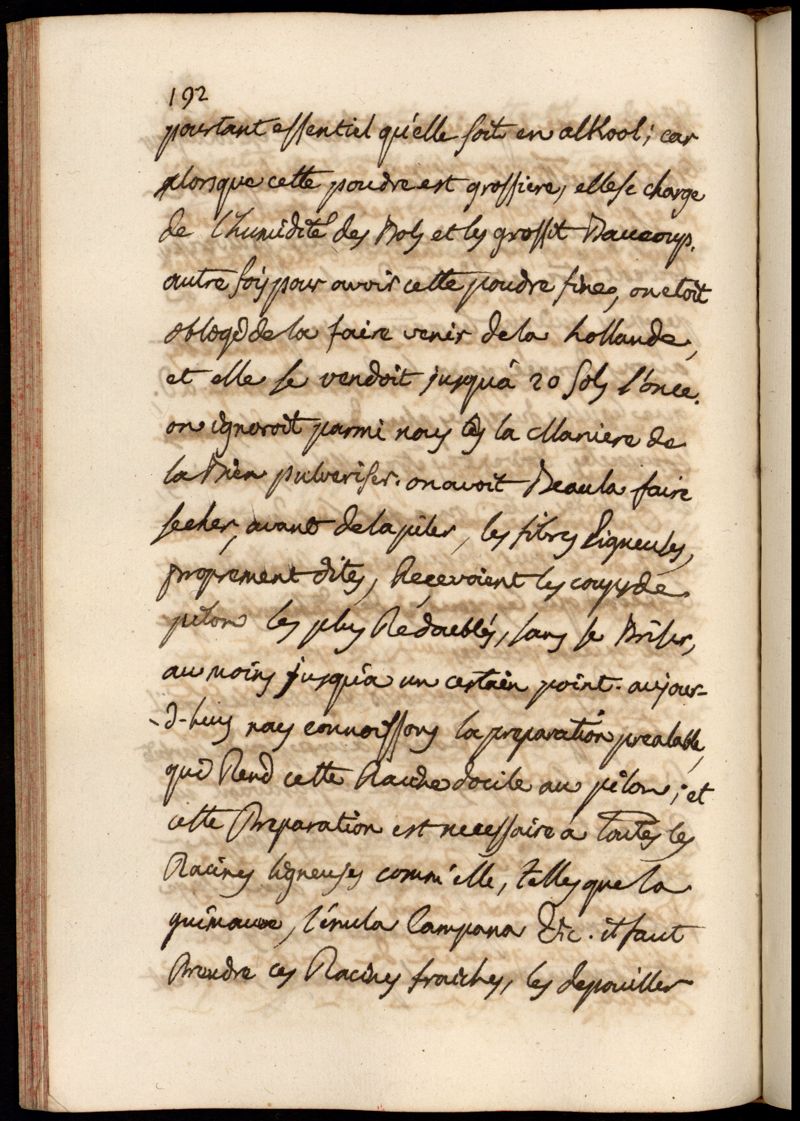 192
pourtant essentiel qu'elle soit en alkool; car
lorsque cette poudre est grossiere, elle se charge
de l'humidité des Bols et les grossit Baucoup.
autre fois pour avoir cette poudre fine, on etoit
obligé de la faire venir de la hollande,
et elle se vendoit jusqu'à 20 sols l'once.
on ignoroit parmi nous la Maniere de
la Bien pulveriser. on avoit Beau la faire
secher, avant de la piler, les fibres ligneuses,
proprement dites, Recevoient les coups de
pilon les plus Redoublés, sans se Briser,
au moins jusqu'a un certain point. aujour-
-d-huy nous connoissons la preparation prealable,
qui Rend cette Racine docile au pilon; et
cette Preparation est necessaire a Toutes les
Racines ligneuses comm'elle, Telles que la
guimauve, l'énula Campana &c. il faut
Prendre ces Racines fraiches, les depouiller